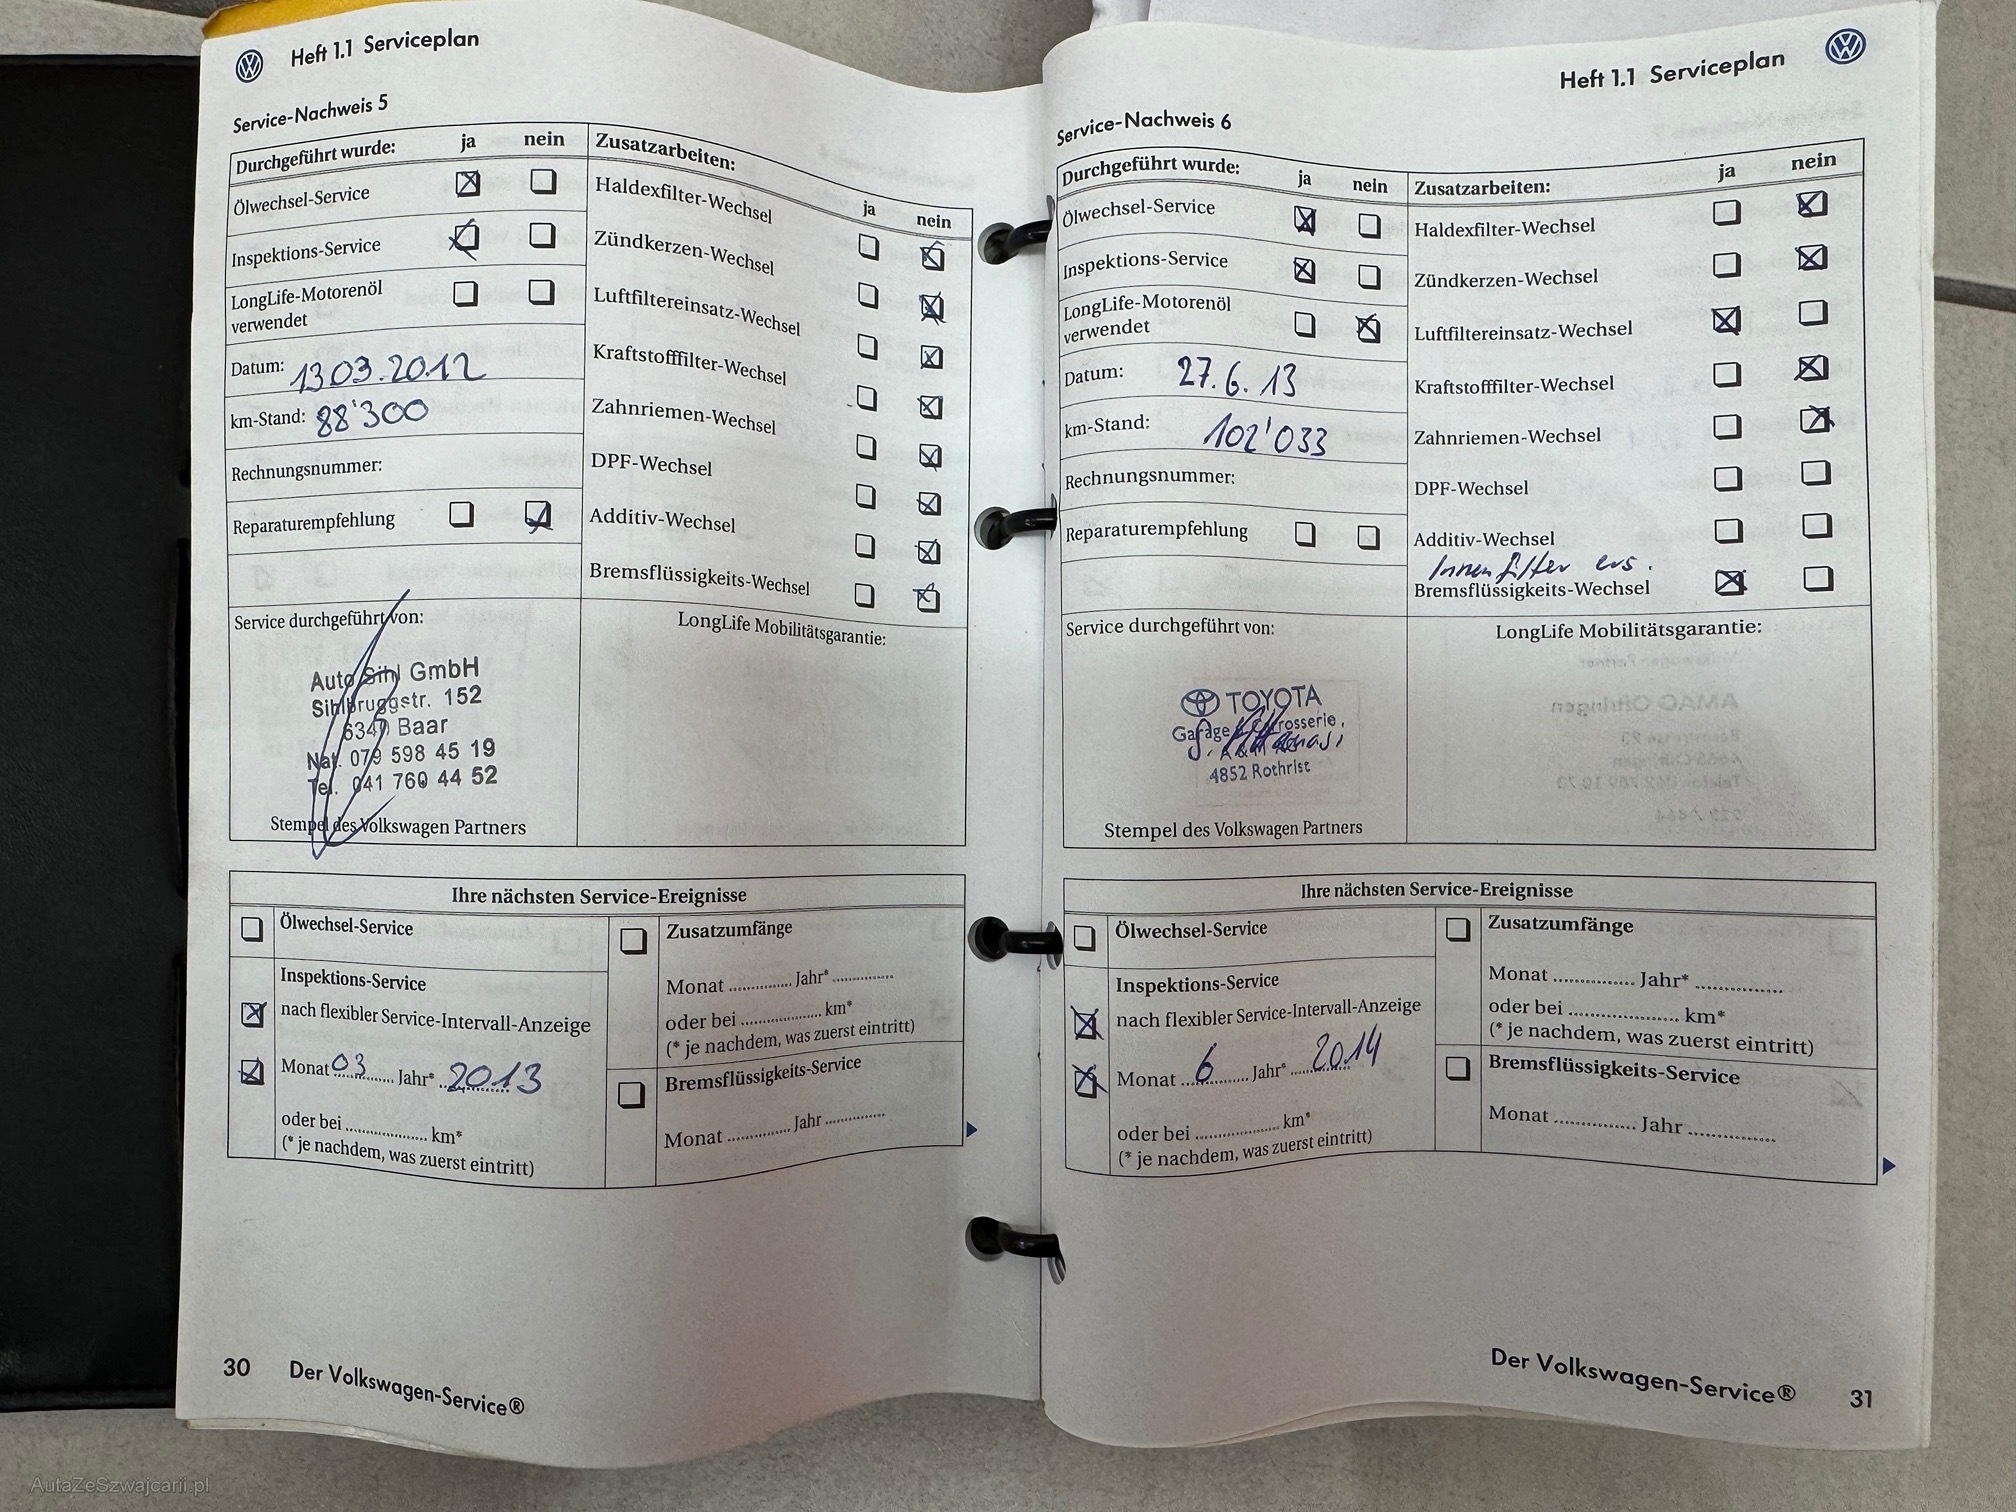 Heft 1.1 Serviceplan
Service-Nachweis 5
Durchgeführt wurde: ja nein
Ölwechsel-Service
Inspektions-Service
LongLife-Motorenöl
verwendet
Datum: 13.03.2012
km-Stand: 88'300
Rechnungsnummer:
Reparaturempfehlung
Zusatzarbeiten:
ja nein
Haldexfilter-Wechsel
Zündkerzen-Wechsel
Luftfiltereinsatz-Wechsel
Kraftstofffilter-Wechsel
Zahnriemen-Wechsel
DPF-Wechsel
Additiv-Wechsel
Bremsflüssigkeits-Wechsel
Service durchgeführt von:
Auto Sihl GmbH
Sihlbruggstr. 152
6340 Baar
Nat. 079 598 45 19
Tel. 041 760 44 52
Stempel des Volkswagen Partners
LongLife Mobilitätsgarantie:
Ihre nächsten Service-Ereignisse
Ölwechsel-Service
Inspektions-Service
nach flexibler Service-Intervall-Anzeige
Monat 03 Jahr* 2013
oder bei ................. km*
(* je nachdem, was zuerst eintritt)
Zusatzumfänge
Monat ............. Jahr* .............
oder bei ................. km*
(* je nachdem, was zuerst eintritt)
Bremsflüssigkeits-Service
Monat ............. Jahr .............
30 Der Volkswagen-Service®
Heft 1.1 Serviceplan
Service-Nachweis 6
Durchgeführt wurde: ja nein
Ölwechsel-Service
Inspektions-Service
LongLife-Motorenöl
verwendet
Datum: 27.6.13
km-Stand: 102'033
Rechnungsnummer:
Reparaturempfehlung
Zusatzarbeiten: ja nein
Haldexfilter-Wechsel
Zündkerzen-Wechsel
Luftfiltereinsatz-Wechsel
Kraftstofffilter-Wechsel
Zahnriemen-Wechsel
DPF-Wechsel
Additiv-Wechsel
Innenfilter ers.
Bremsflüssigkeits-Wechsel
Service durchgeführt von:
TOYOTA
Garage & Carrosserie,
4852 Rothrist
Stempel des Volkswagen Partners
LongLife Mobilitätsgarantie:
Ihre nächsten Service-Ereignisse
Ölwechsel-Service
Inspektions-Service
nach flexibler Service-Intervall-Anzeige
Monat 6 Jahr* 2014
oder bei ................. km*
(* je nachdem, was zuerst eintritt)
Zusatzumfänge
Monat ............. Jahr* .............
oder bei ................. km*
(* je nachdem, was zuerst eintritt)
Bremsflüssigkeits-Service
Monat ............. Jahr .............
Der Volkswagen-Service® 31
AutaZeSzwajcarii.pl